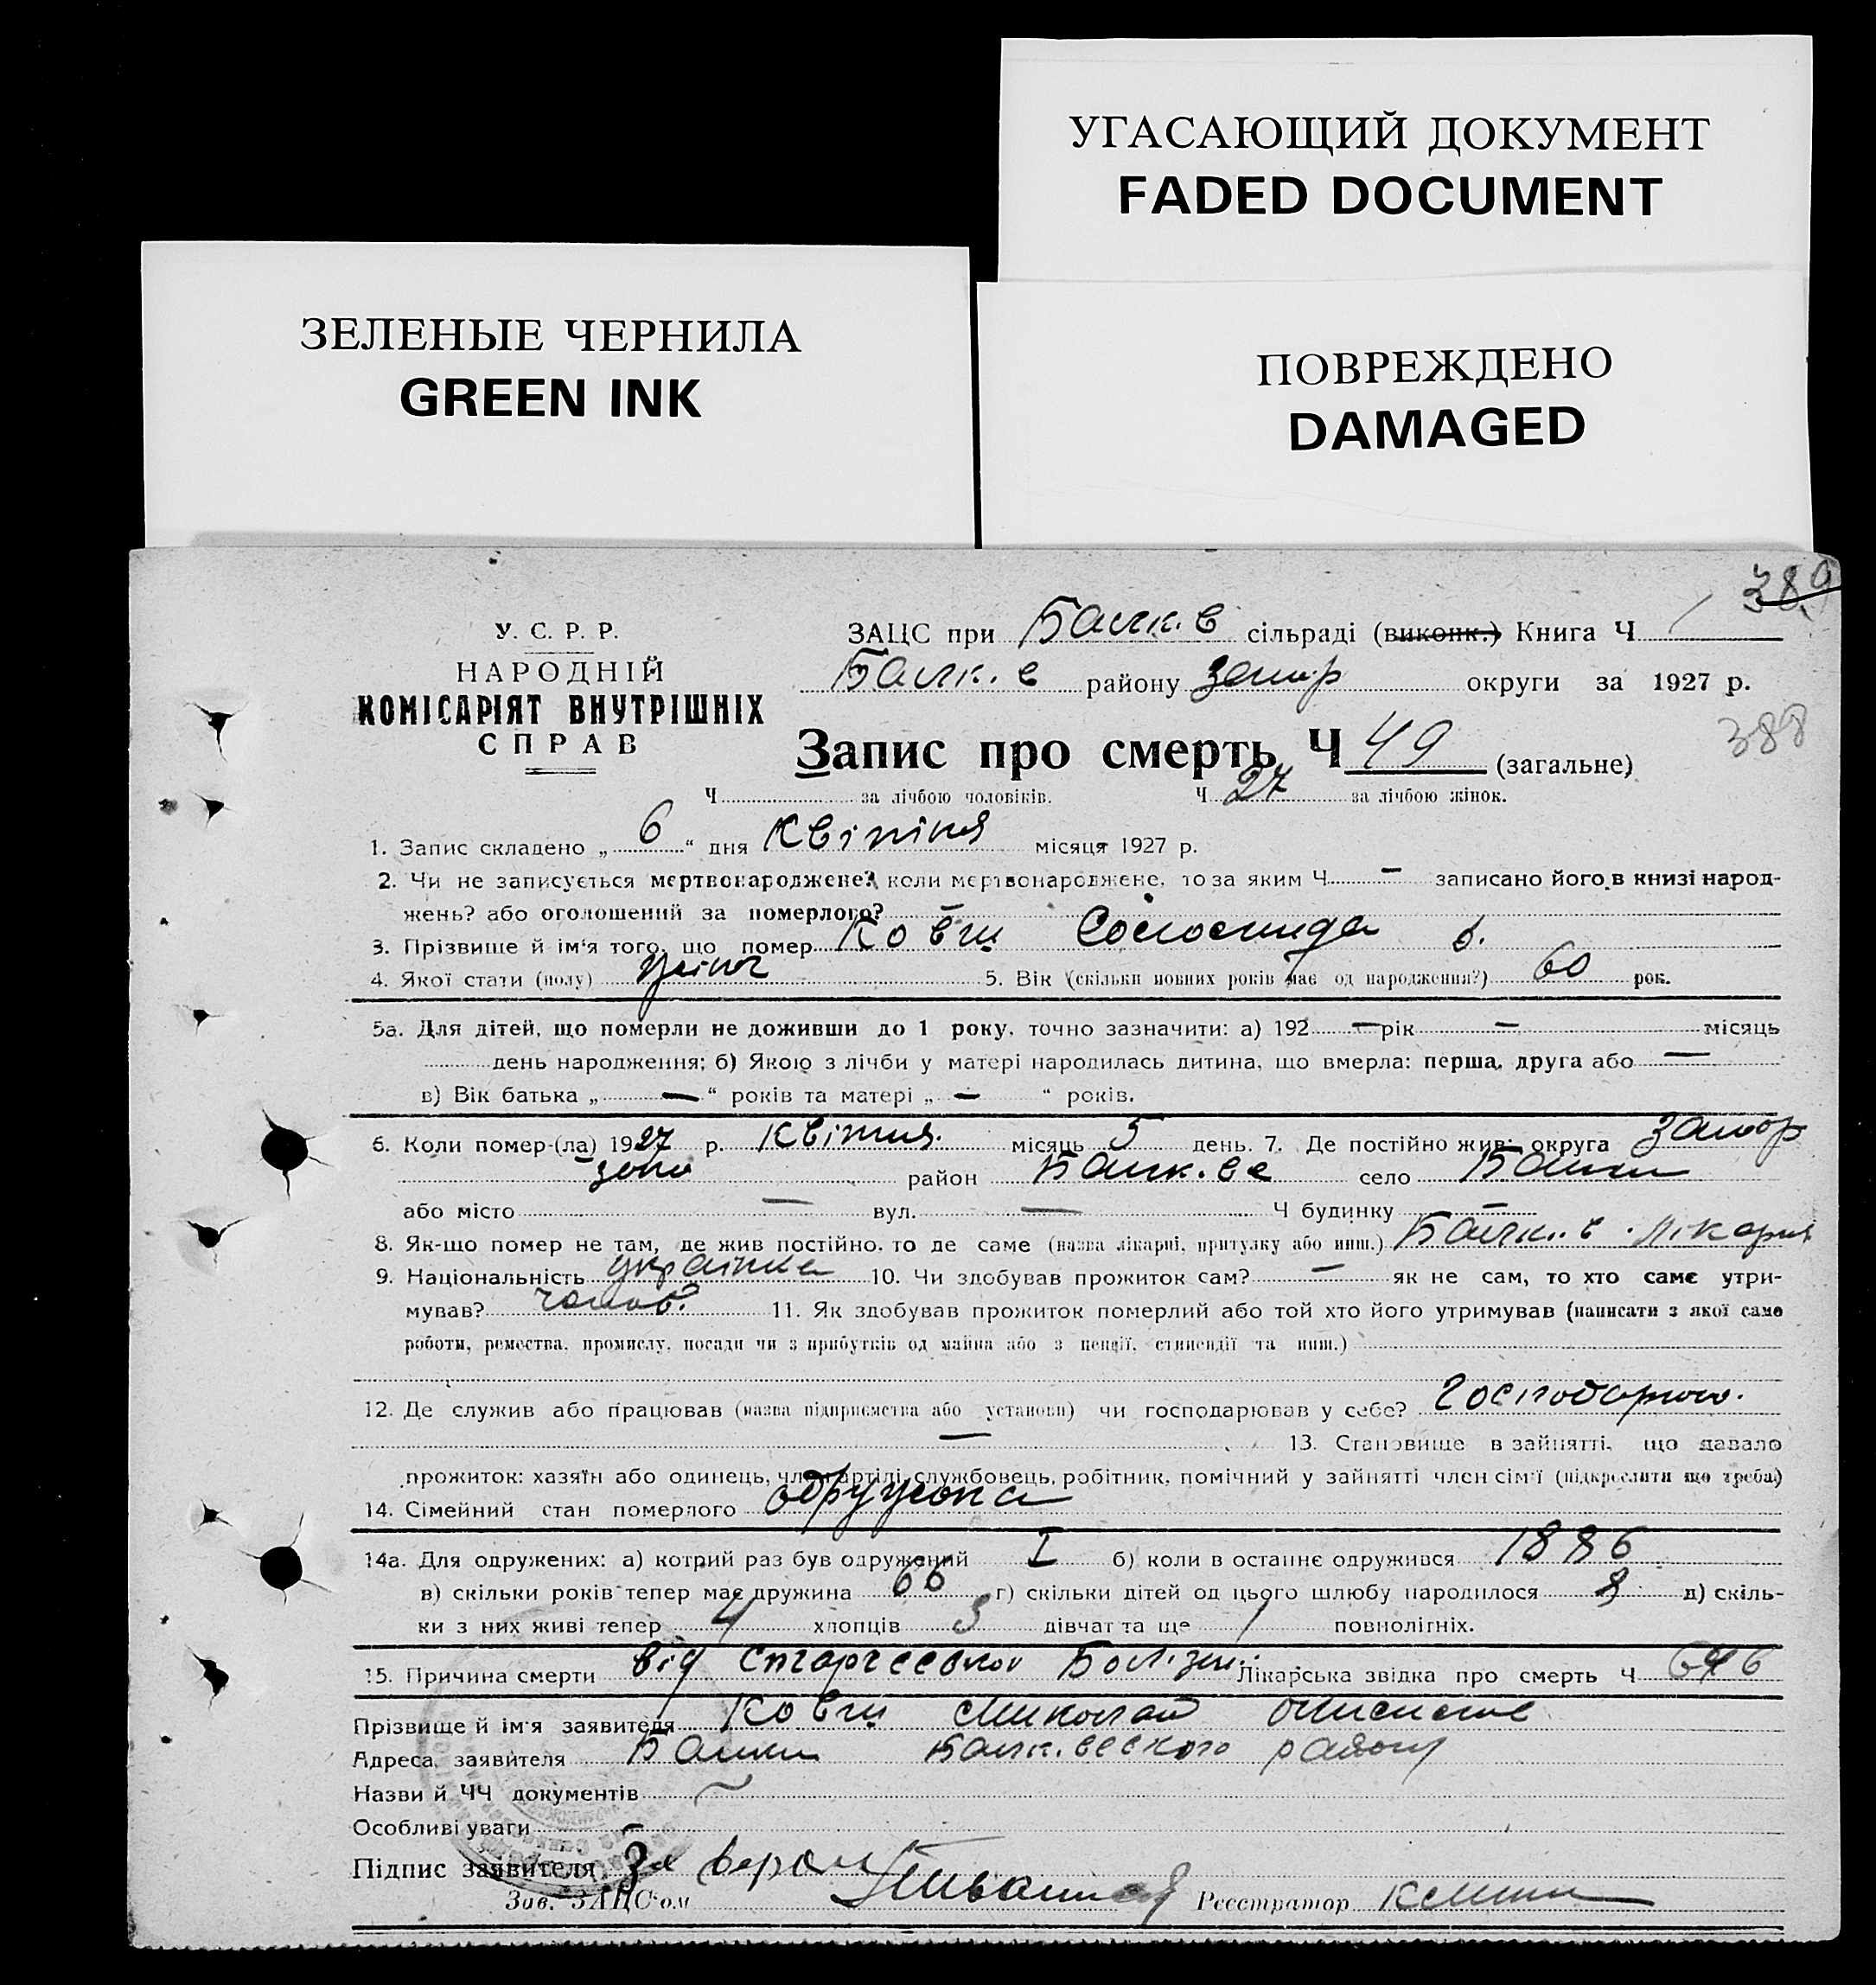 УГАСАЮЩИЙ ДОКУМЕНТ
FADED DOCUMENT
ЗЕЛЕНЫЕ ЧЕРНИЛА
GREEN INK
ПОВРЕЖДЕНО
DAMAGED
389
У. С. Р. Р.
НАРОДНІЙ
КОМІСАРІЯТ ВНУТРІШНІХ
СПРАВ
ЗАЦС при Балк. в сільраді (виконк.) Книга Ч 1
Балк. в району Запор округи за 1927 р.
388
Запис про смерть Ч 49 (загальне)
Ч за лічбою чоловіків. Ч 27 за лічбою жінок.
1. Запис складено „ 6 “ дня Квітня місяця 1927 р.
2. Чи не записується мертвонароджене? коли мертвонароджене, то за яким Ч — записано його в книзі народ-
жень? або оголошений за померлого? —
3. Прізвище й ім'я того, що помер Ковги
4. Якої стати (полу) жіноч 5. Вік (скільки повних років має од народження?) 60 рок.
5а. Для дітей, що померли не доживши до 1 року, точно зазначити: а) 192 — рік — місяць
день народження; б) Якою з лічби у матері народилась дитина, що вмерла: перша, друга або —
в) Вік батька „ — “ років та матері „ — “ років.
6. Коли помер-(ла) 1927 р. Квітня місяць 5 день. 7. Де постійно жив: округа Запор
район Балк. ве село Балки
або місто — вул. — Ч будинку —
8. Як-що помер не там, де жив постійно, то де саме (назва лікарні, притулку або инш.) Балк. в. лікарня
9. Національність українка 10. Чи здобував прожиток сам? — як не сам, то хто саме утри-
мував? чолов. 11. Як здобував прожиток померлий або той хто його утримував (написати з якої саме
роботи, ремества, промислу, посади чи з прибутків од майна або з пенсії, стипендії та инш.)
12. Де служив або працював (назва підприємства або установи) чи господарював у себе? Господарюв.
— 13. Становище в зайнятті, що давало
прожиток: хазяїн або одинець, член артілі, службовець, робітник, помічний у зайнятті член сім'ї (підкреслити що треба)
14. Сімейний стан померлого одружона
14а. Для одружених: а) котрий раз був одружений I б) коли в останнє одружився 1886
в) скільки років тепер має дружина 66 г) скільки дітей од цього шлюбу народилося 8 д) скіль-
ки з них живі тепер 4 хлопців 3 дівчат та ще 1 повнолігніх.
15. Причина смерти від Старчеевкої Болізни Лікарська звідка про смерть Ч
Прізвище й ім'я заявителя Ковги Миколай
Адреса заявителя Балки Балк. веского району
Назви й ЧЧ документів
Особливі уваги —
Підпис заявителя
Зав. ЗАЦС'ом Реєстратор